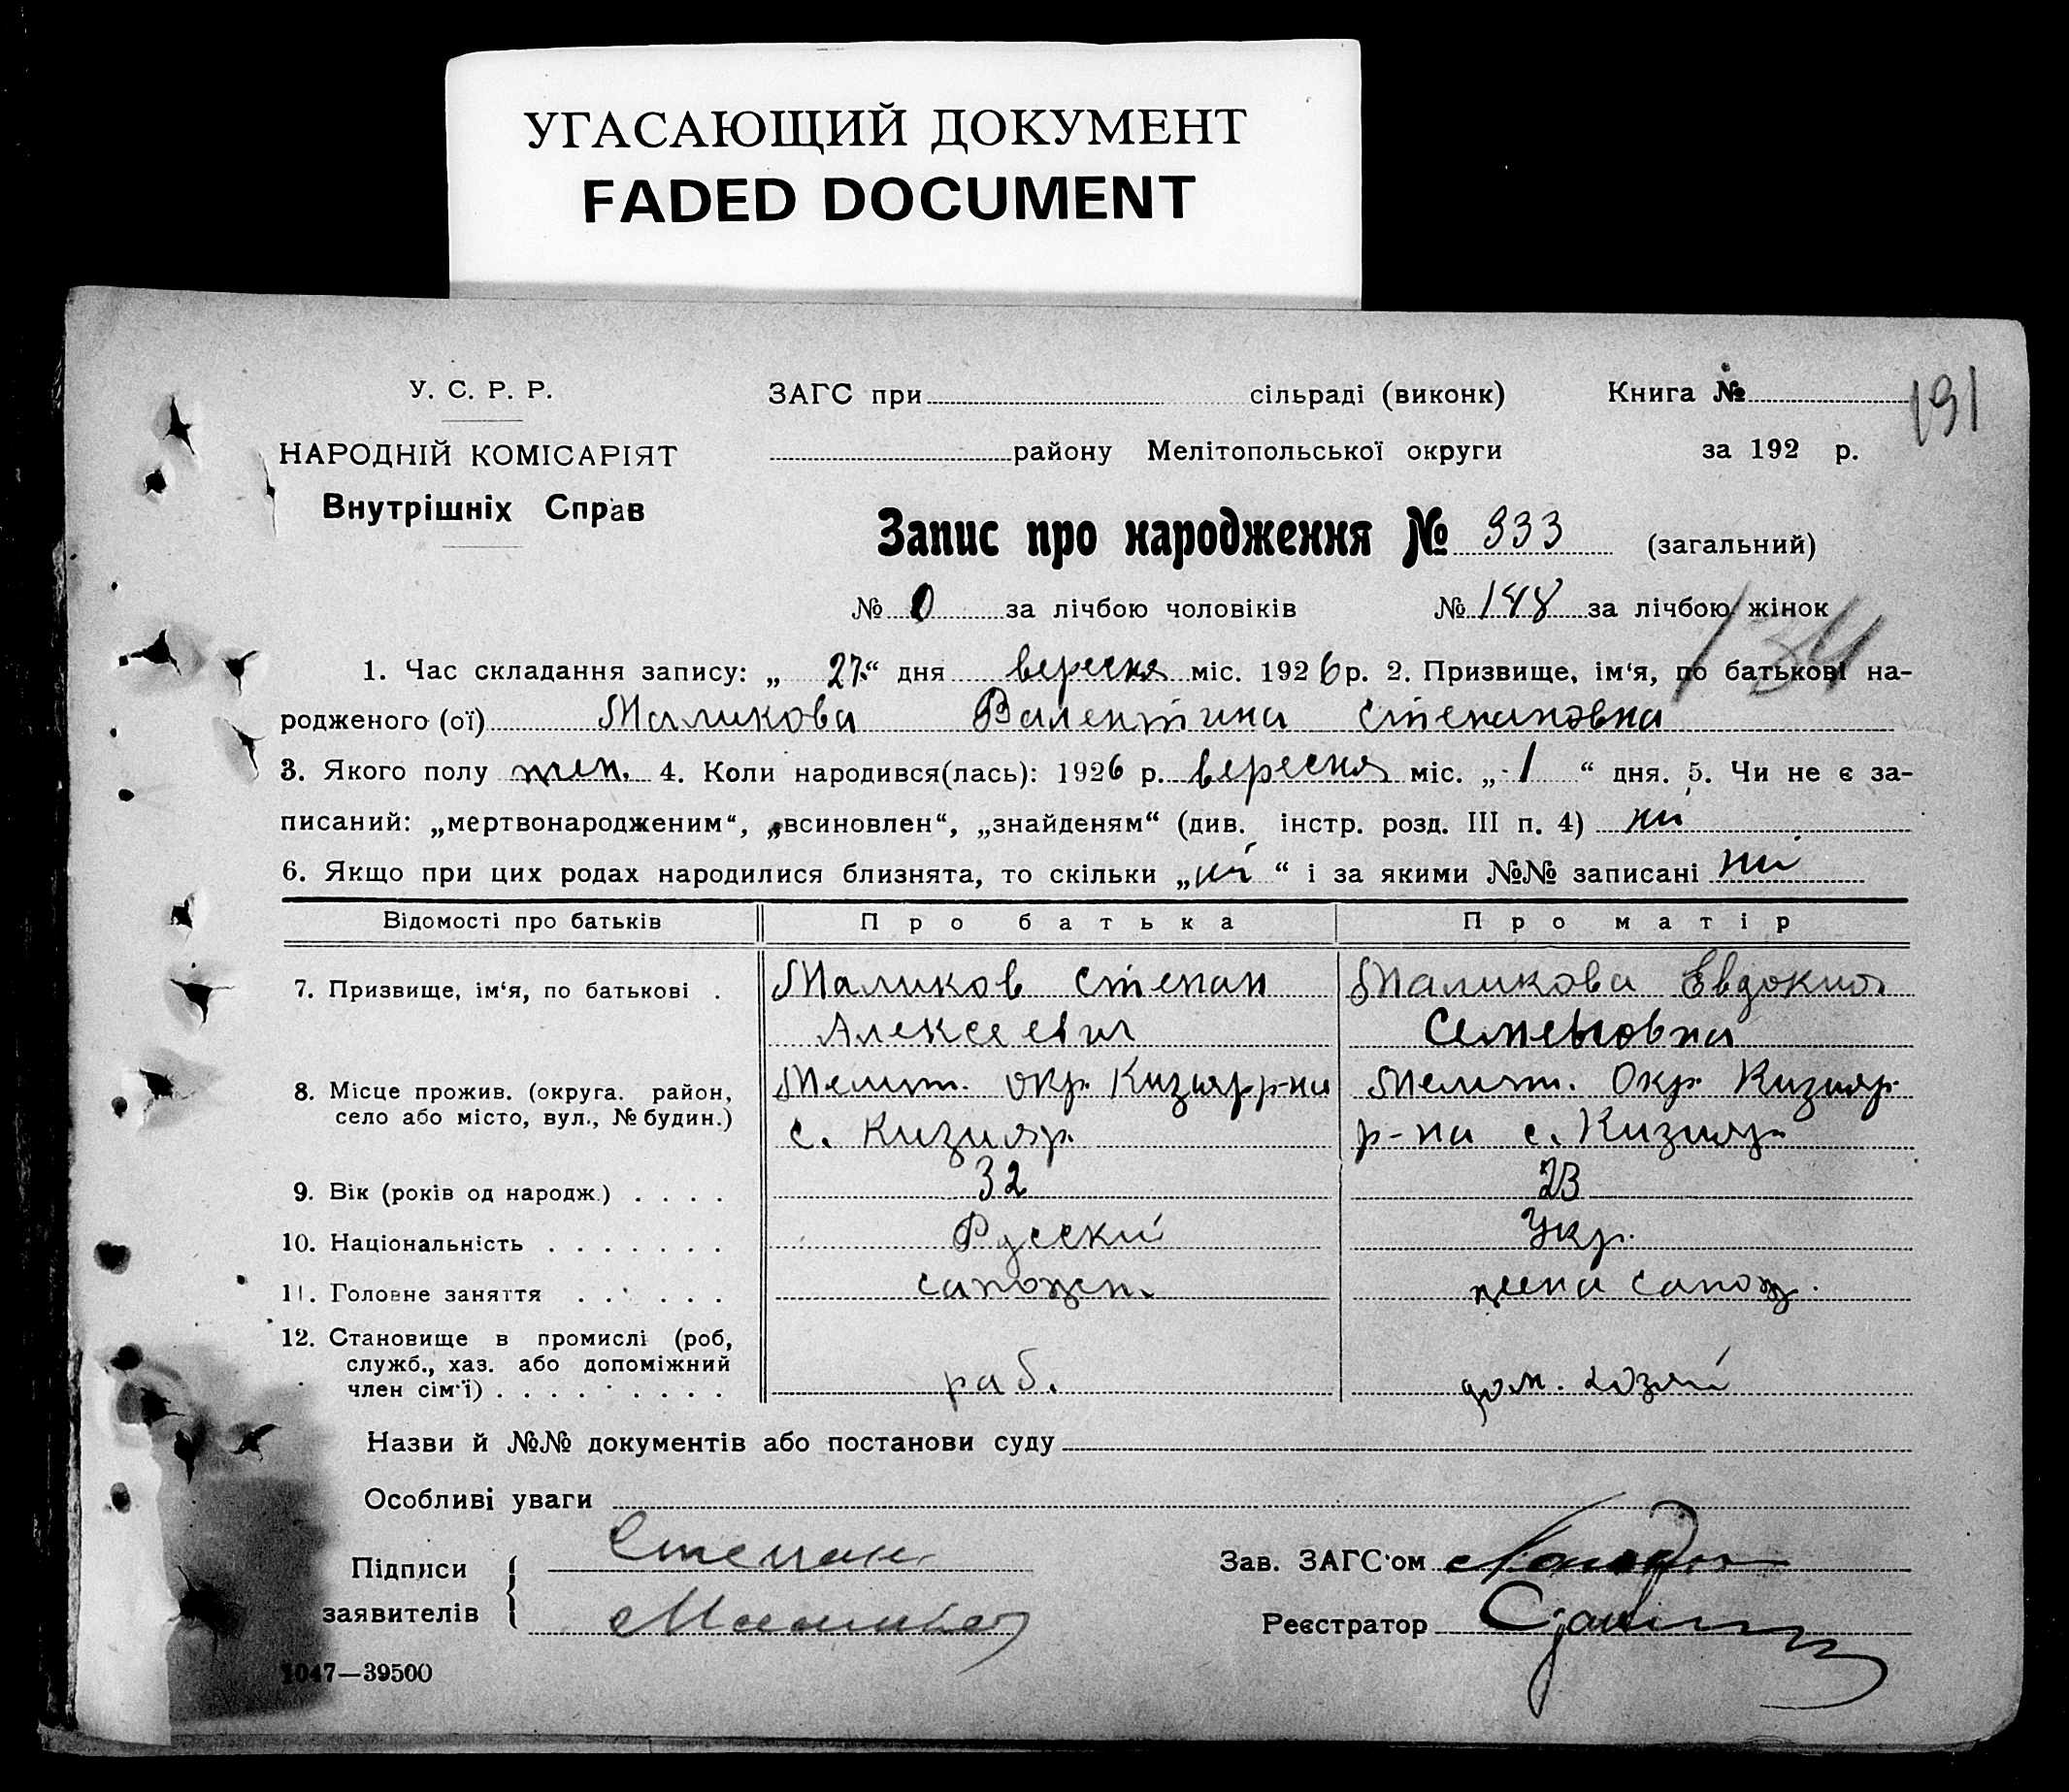 УГАСАЮЩИЙ ДОКУМЕНТ
FADED DOCUMENT
У. С. Р. Р.
НАРОДНІЙ КОМІСАРІЯТ
Внутрішніх Справ
ЗАГС при сільраді (виконк)
Книга №
191
району Мелітопольської округи
за 192 р.
Запис про народження № 333 (загальний)
№ 0 за лічбою чоловіків № 148 за лічбою жінок
134
1. Час складання запису: „ 27 “ дня вересня міс. 1926 р. 2. Призвище, ім‘я, по батькові на-
родженого (ої) Маликова Валентина Степановна
3. Якого полу жен. 4. Коли народився(лась): 1926 р. вересня міс. „ 1 “ дня. 5. Чи не є за-
писаний: „мертвонародженим“, „всиновлен“, „знайденям“ (див. інстр. розд. III п. 4) ні
6. Якщо при цих родах народилися близнята, то скільки „ні“ і за якими №№ записані ні
Відомості про батьків Про батька Про матір
7. Призвище, ім‘я, по батькові . Маликов Степан Маликова Евдокия
Алексеевич Семеновна
8. Місце прожив. (округа. район, Мелит. окр. Кизиярр-на Мелит. Окр. Кизияр.
село або місто, вул., № будин.) с. Кизияр. р-на с. Кизияр.
9. Вік (років од народж.) . . . . 32 23
10. Національність . . . . . . . Русскі Укр.
11. Головне заняття . . . . . . сапожн. жена сапож.
12. Становище в промислі (роб,
служб., хаз. або допоміжний
член сім‘ї) . . . . . . . . . раб. дом. хозяй
Назви й №№ документів або постанови суду
Особливі уваги
Підписи
заявителів
Степан
Маликов
Зав. ЗАГС‘ом
Реєстратор
1047—39500